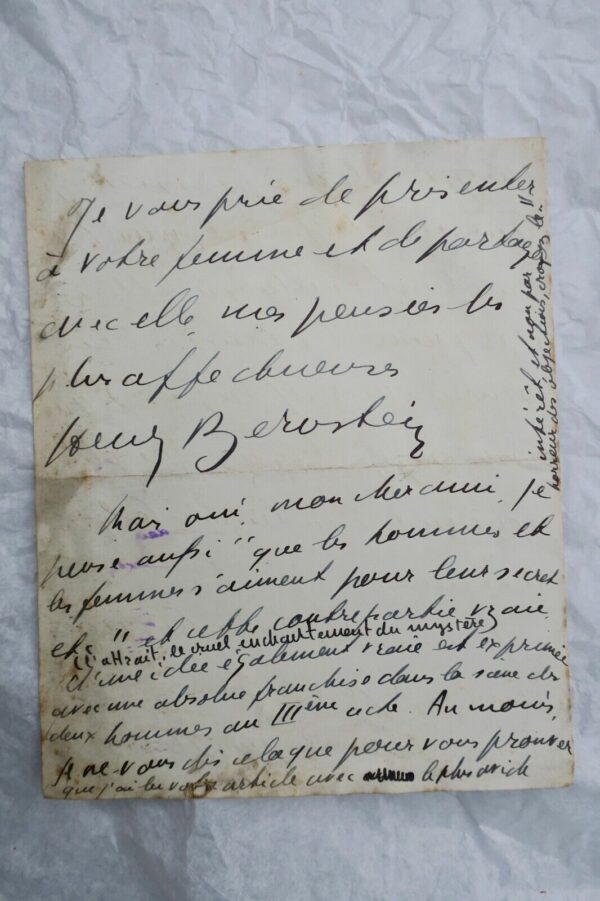 Je vous prie de présenter
à votre femme et de partager
avec elle, mes pensées les
plus affectueuses
Henry Bernstein
Mais oui, mon cher ami, je
pense aussi "que les hommes et
les femmes s'aiment pour leur secret
et " et cette contrepartie vraie
(l'attrait, le cruel enchantement du mystère)
d'une idée également vraie est exprimée
avec une absolue franchise dans la scène des
deux hommes au IIIème acte. Au moins,
je ne vous dis cela que pour vous prouver
que j'ai lu votre article avec le plus avide
intérêt et non par
horreur des objections, croyez-le..